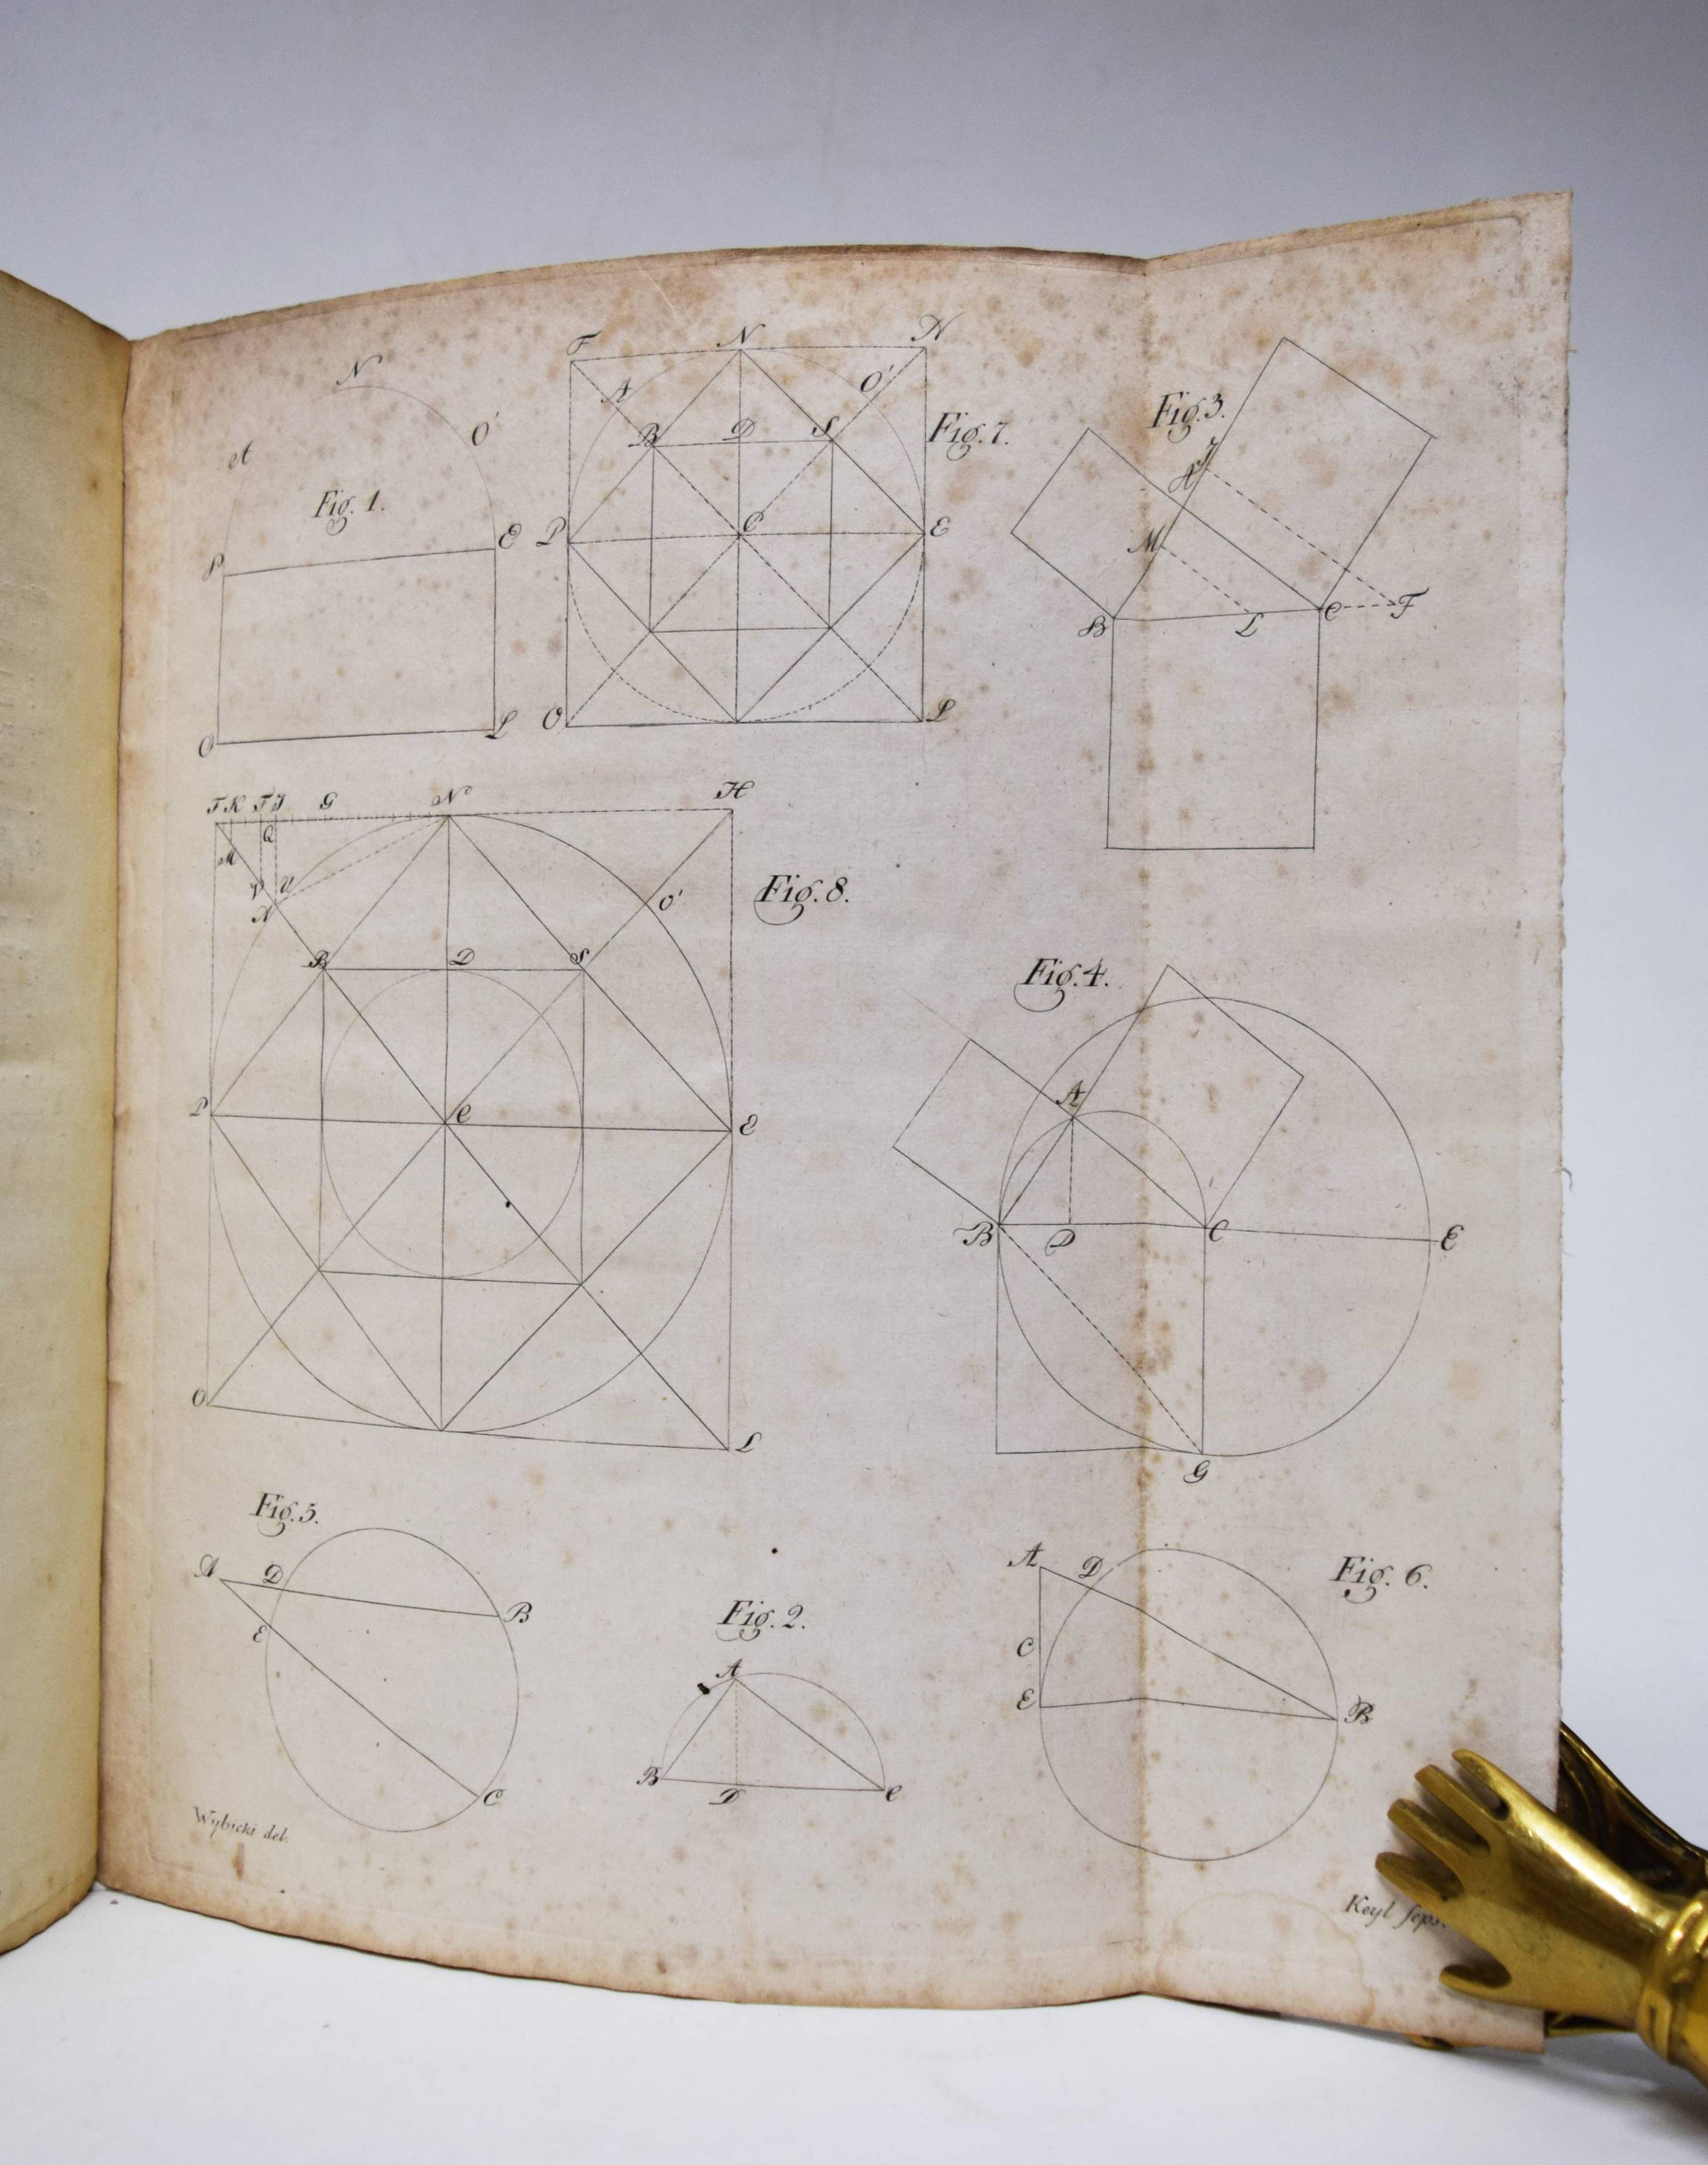 N
A
O'
Fig. 1.
P
E
O
L
F
N
H
A
O'
B
D
S
Fig. 7.
P
C
E
O
L
Fig. 3.
A
M
B
L
C
F
F K T I G N H
Q
M
V U
A
O'
Fig. 8.
B D S
P
C
E
O
L
Fig. 4.
A
B D C E
G
Fig. 5.
A D
B
E
C
Fig. 2.
A
B
D
C
A D
Fig. 6.
C
E
B
Wybicki del.
Keyl